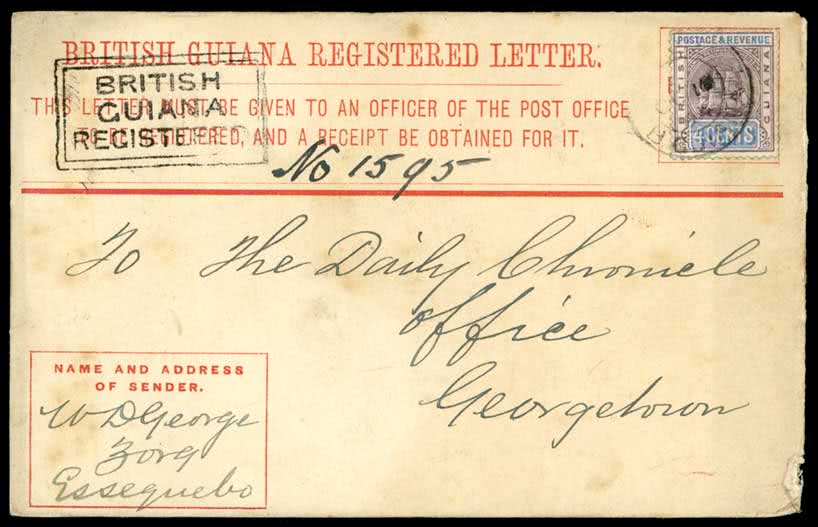 BRITISH GUIANA REGISTERED LETTER.
THIS LETTER MUST BE GIVEN TO AN OFFICER OF THE POST OFFICE
TO BE REGISTERED, AND A RECEIPT BE OBTAINED FOR IT.
BRITISH
GUIANA
REGISTERED
No 1595
POSTAGE & REVENUE
BRITISH
GUIANA
4 CENTS
To The Daily Chronicle
Office
Georgetown
NAME AND ADDRESS
OF SENDER.
W D George
Zorg
Essequebo